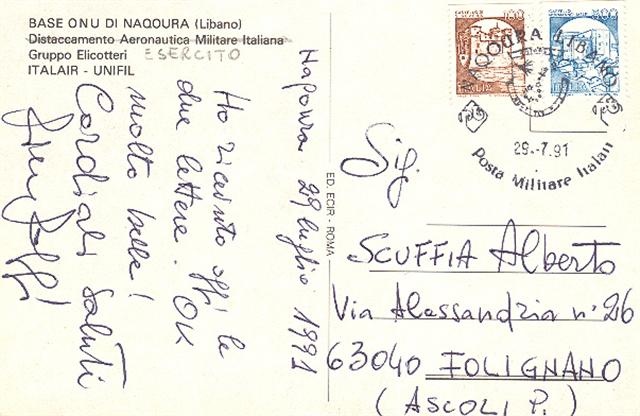 BASE ONU DI NAQOURA (Libano)
Distaccamento Aeronautica Militare Italiana
Gruppo Elicotteri ESERCITO
ITALAIR - UNIFIL
Naqoura 29 luglio 1991
Ho ricevuto oggi le
due lettere. OK
molto belle!
Cordiali saluti
ED. ECIR - ROMA
ITALIA
NAQOURA LIBANO
29.-7.91
Posta Militare Italian
Sig.
SCUFFIA Alberto
Via Alessandria n° 26
63040 FOLIGNANO
(ASCOLI P.)